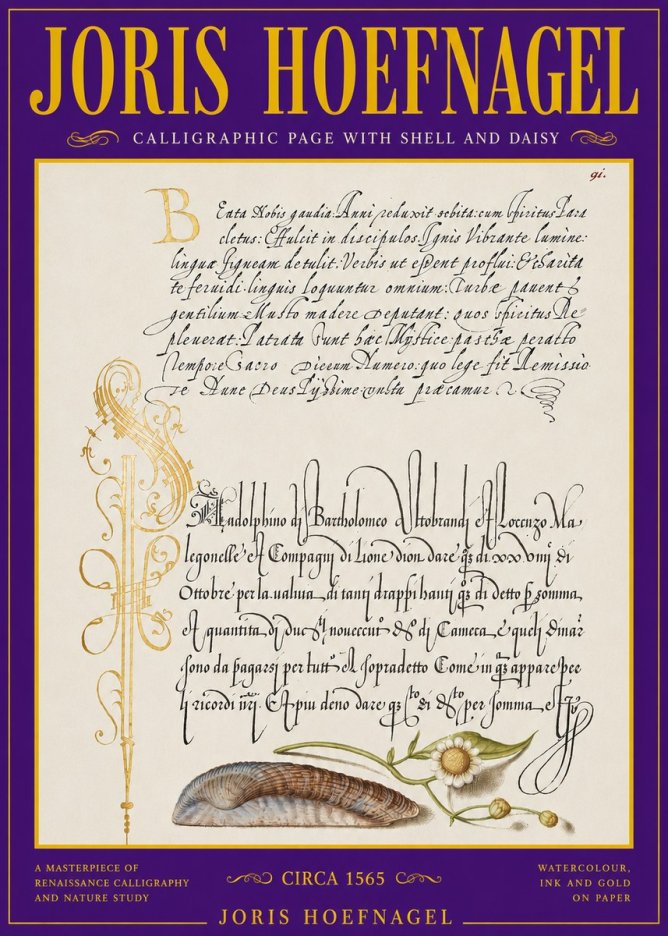 JORIS HOEFNAGEL
CALLIGRAPHIC PAGE WITH SHELL AND DAISY
91.
Eata Nobis gaudia: Anni reduxit orbita: cum Spiritus Para
cletus: Effulcit in discipulos. Ignis Vibrante lumine:
linguæ figueam detulit: Verbis ut eßent proflui: & Carita
te feruidi: linguis loquuntur omnium: Turbæ pauent &
gentilium Musto madere Deputant: quos spiritus Re
pleuerat: Patrata Sunt hæc Mystice: paschæ peracto
Tempore Sacro Dierum Numero: quo lege fit Remissio
Te Nunc Deus Pijßime: vultu præcamur
Radolphino di Bartholomeo Altobrandi et Lorenzo Ma
legonelle et Compagni di Lione dion dare di xxviiij di
Ottobre per la ualuta di tanti drappi hauti di detto somma
et quantita di nouecento di Camera e quelj
sono da pagarsi per tutto el sopradetto Come in appare per
li ricordi E piu deno dare di per somma
A MASTERPIECE OF
RENAISSANCE CALLIGRAPHY
AND NATURE STUDY
CIRCA 1565
WATERCOLOUR,
INK AND GOLD
ON PAPER
JORIS HOEFNAGEL